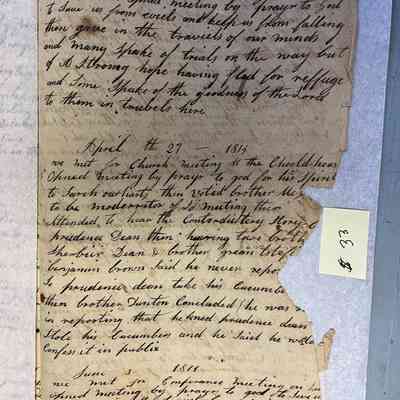 to Save us from evels and keep us from falling
then gave in the travels of our minds
and many Spake of trials on the way but
of A Strong hope having fled for reffuge
and Some Spake of the goodness of the Lord
to them in trubels here
April th 27 – 1811
we met for Church meeting at the
opned meeting by prayer to god for his Spirit
to our then Voted brother
to be modderator of Sd meeting then
Attended to hear the Contordictory Story
prudence Dean then hearing two broth
brother
benjamin brown Said he never repor
So prudence dean take his Cucumbe
then brother Dunton Concluded he was
in reporting that he kned prudence dean
Stole his Cucumbers and he Said he would
Confess it in publix
June 1811
we met for Conferance Meeting on
opned meeting by prayer to god
33